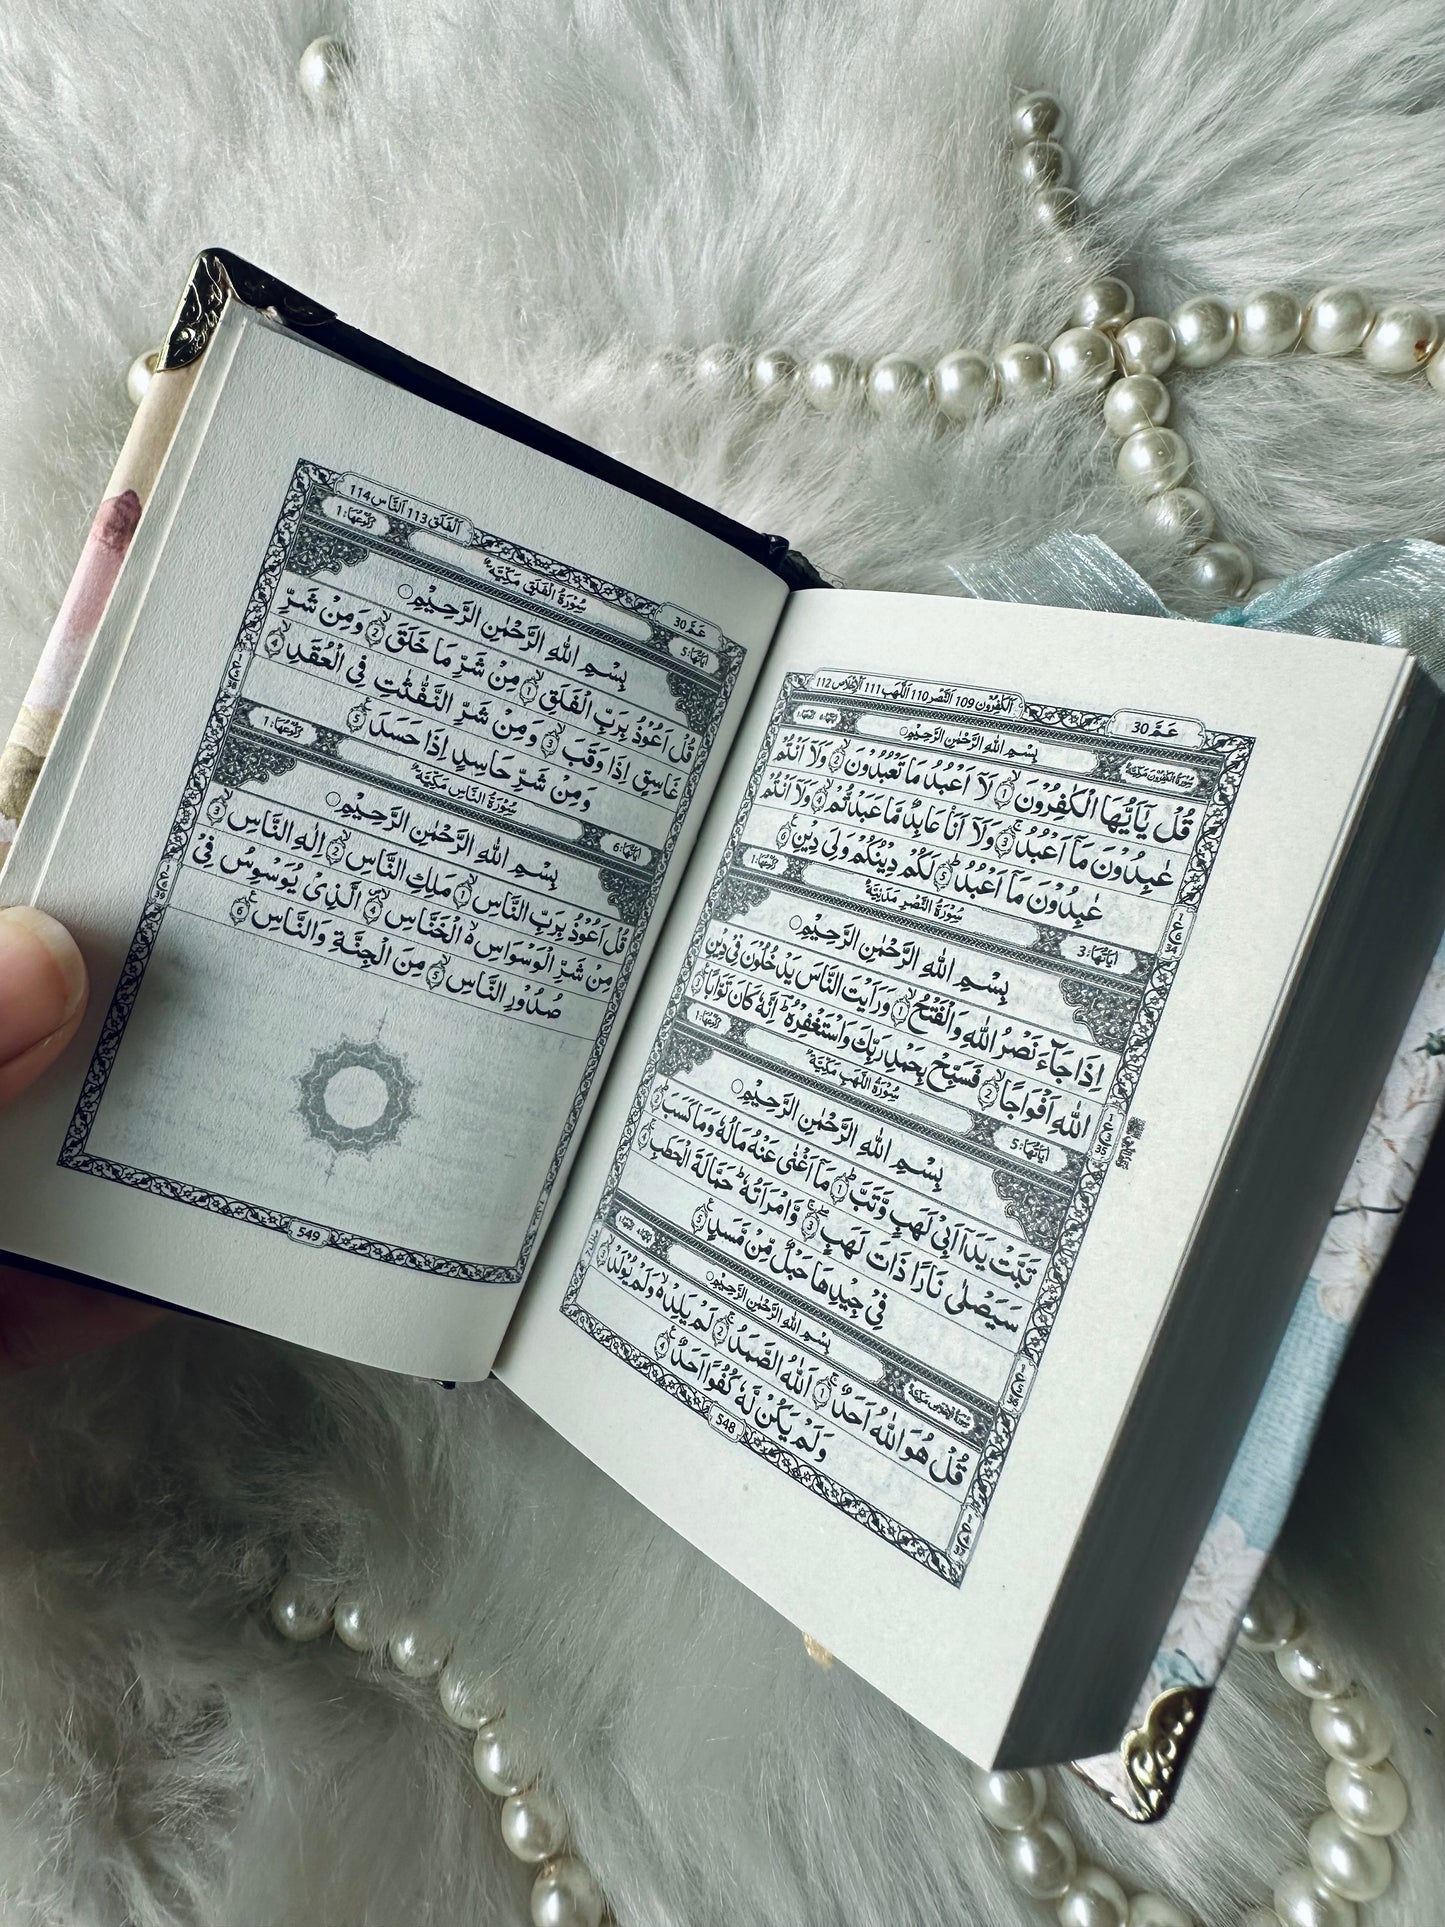 عَمَّ 30
اَلْكٰفِرُوْن 109 اَلنَّصْر 110 اَللَّهَب 111 اَلْاِخْلَاص 112
سُوْرَةُ الْكٰفِرُوْنَ مَكِّيَّةٌ
بِسْمِ اللّٰهِ الرَّحْمٰنِ الرَّحِيْمِ
قُلْ يٰٓاَيُّهَا الْكٰفِرُوْنَ ۙ1 لَآ اَعْبُدُ مَا تَعْبُدُوْنَ ۙ2 وَلَآ اَنْتُمْ
عٰبِدُوْنَ مَآ اَعْبُدُ ۚ3 وَلَآ اَنَا عَابِدٌ مَّا عَبَدْتُّمْ ۙ4 وَلَآ اَنْتُمْ
عٰبِدُوْنَ مَآ اَعْبُدُ ؕ5 لَكُمْ دِيْنُكُمْ وَلِيَ دِيْنِ 6
اٰيَاتُهَا: 3 سُوْرَةُ النَّصْرِ مَدَنِيَّةٌ رُكُوْعُهَا: 1
بِسْمِ اللّٰهِ الرَّحْمٰنِ الرَّحِيْمِ
اِذَا جَآءَ نَصْرُ اللّٰهِ وَالْفَتْحُ ۙ1 وَرَاَيْتَ النَّاسَ يَدْخُلُوْنَ فِيْ دِيْنِ
اللّٰهِ اَفْوَاجًا ۙ2 فَسَبِّحْ بِحَمْدِ رَبِّكَ وَاسْتَغْفِرْهُ ؕ اِنَّهٗ كَانَ تَوَّابًا 3
اٰيَاتُهَا: 5 سُوْرَةُ اللَّهَبِ مَكِّيَّةٌ رُكُوْعُهَا: 1
بِسْمِ اللّٰهِ الرَّحْمٰنِ الرَّحِيْمِ
تَبَّتْ يَدَآ اَبِيْ لَهَبٍ وَّتَبَّ ؕ1 مَآ اَغْنٰى عَنْهُ مَالُهٗ وَمَا كَسَبَ ؕ2
سَيَصْلٰى نَارًا ذَاتَ لَهَبٍ ۚۖ3 وَّامْرَاَتُهٗ ؕ حَمَّالَةَ الْحَطَبِ ۚ4
فِيْ جِيْدِهَا حَبْلٌ مِّنْ مَّسَدٍ 5
سُوْرَةُ الْاِخْلَاصِ مَكِّيَّةٌ
بِسْمِ اللّٰهِ الرَّحْمٰنِ الرَّحِيْمِ
قُلْ هُوَ اللّٰهُ اَحَدٌ ۚ1 اَللّٰهُ الصَّمَدُ ۚ2 لَمْ يَلِدْ ۙ وَلَمْ يُوْلَدْ ۙ3
وَلَمْ يَكُنْ لَّهٗ كُفُوًا اَحَدٌ 4
548
عَمَّ 30
اَلْفَلَق 113 اَلنَّاس 114
اٰيَاتُهَا: 5 سُوْرَةُ الْفَلَقِ مَكِّيَّةٌ رُكُوْعُهَا: 1
بِسْمِ اللّٰهِ الرَّحْمٰنِ الرَّحِيْمِ
قُلْ اَعُوْذُ بِرَبِّ الْفَلَقِ ۙ1 مِنْ شَرِّ مَا خَلَقَ ۙ2 وَمِنْ شَرِّ
غَاسِقٍ اِذَا وَقَبَ ۙ3 وَمِنْ شَرِّ النَّفّٰثٰتِ فِي الْعُقَدِ ۙ4
وَمِنْ شَرِّ حَاسِدٍ اِذَا حَسَدَ 5
اٰيَاتُهَا: 6 سُوْرَةُ النَّاسِ مَكِّيَّةٌ رُكُوْعُهَا: 1
بِسْمِ اللّٰهِ الرَّحْمٰنِ الرَّحِيْمِ
قُلْ اَعُوْذُ بِرَبِّ النَّاسِ ۙ1 مَلِكِ النَّاسِ ۙ2 اِلٰهِ النَّاسِ ۙ3
مِنْ شَرِّ الْوَسْوَاسِ ۙ الْخَنَّاسِ ۪ۙ4 الَّذِيْ يُوَسْوِسُ فِيْ
صُدُوْرِ النَّاسِ ۙ5 مِنَ الْجِنَّةِ وَالنَّاسِ 6
549